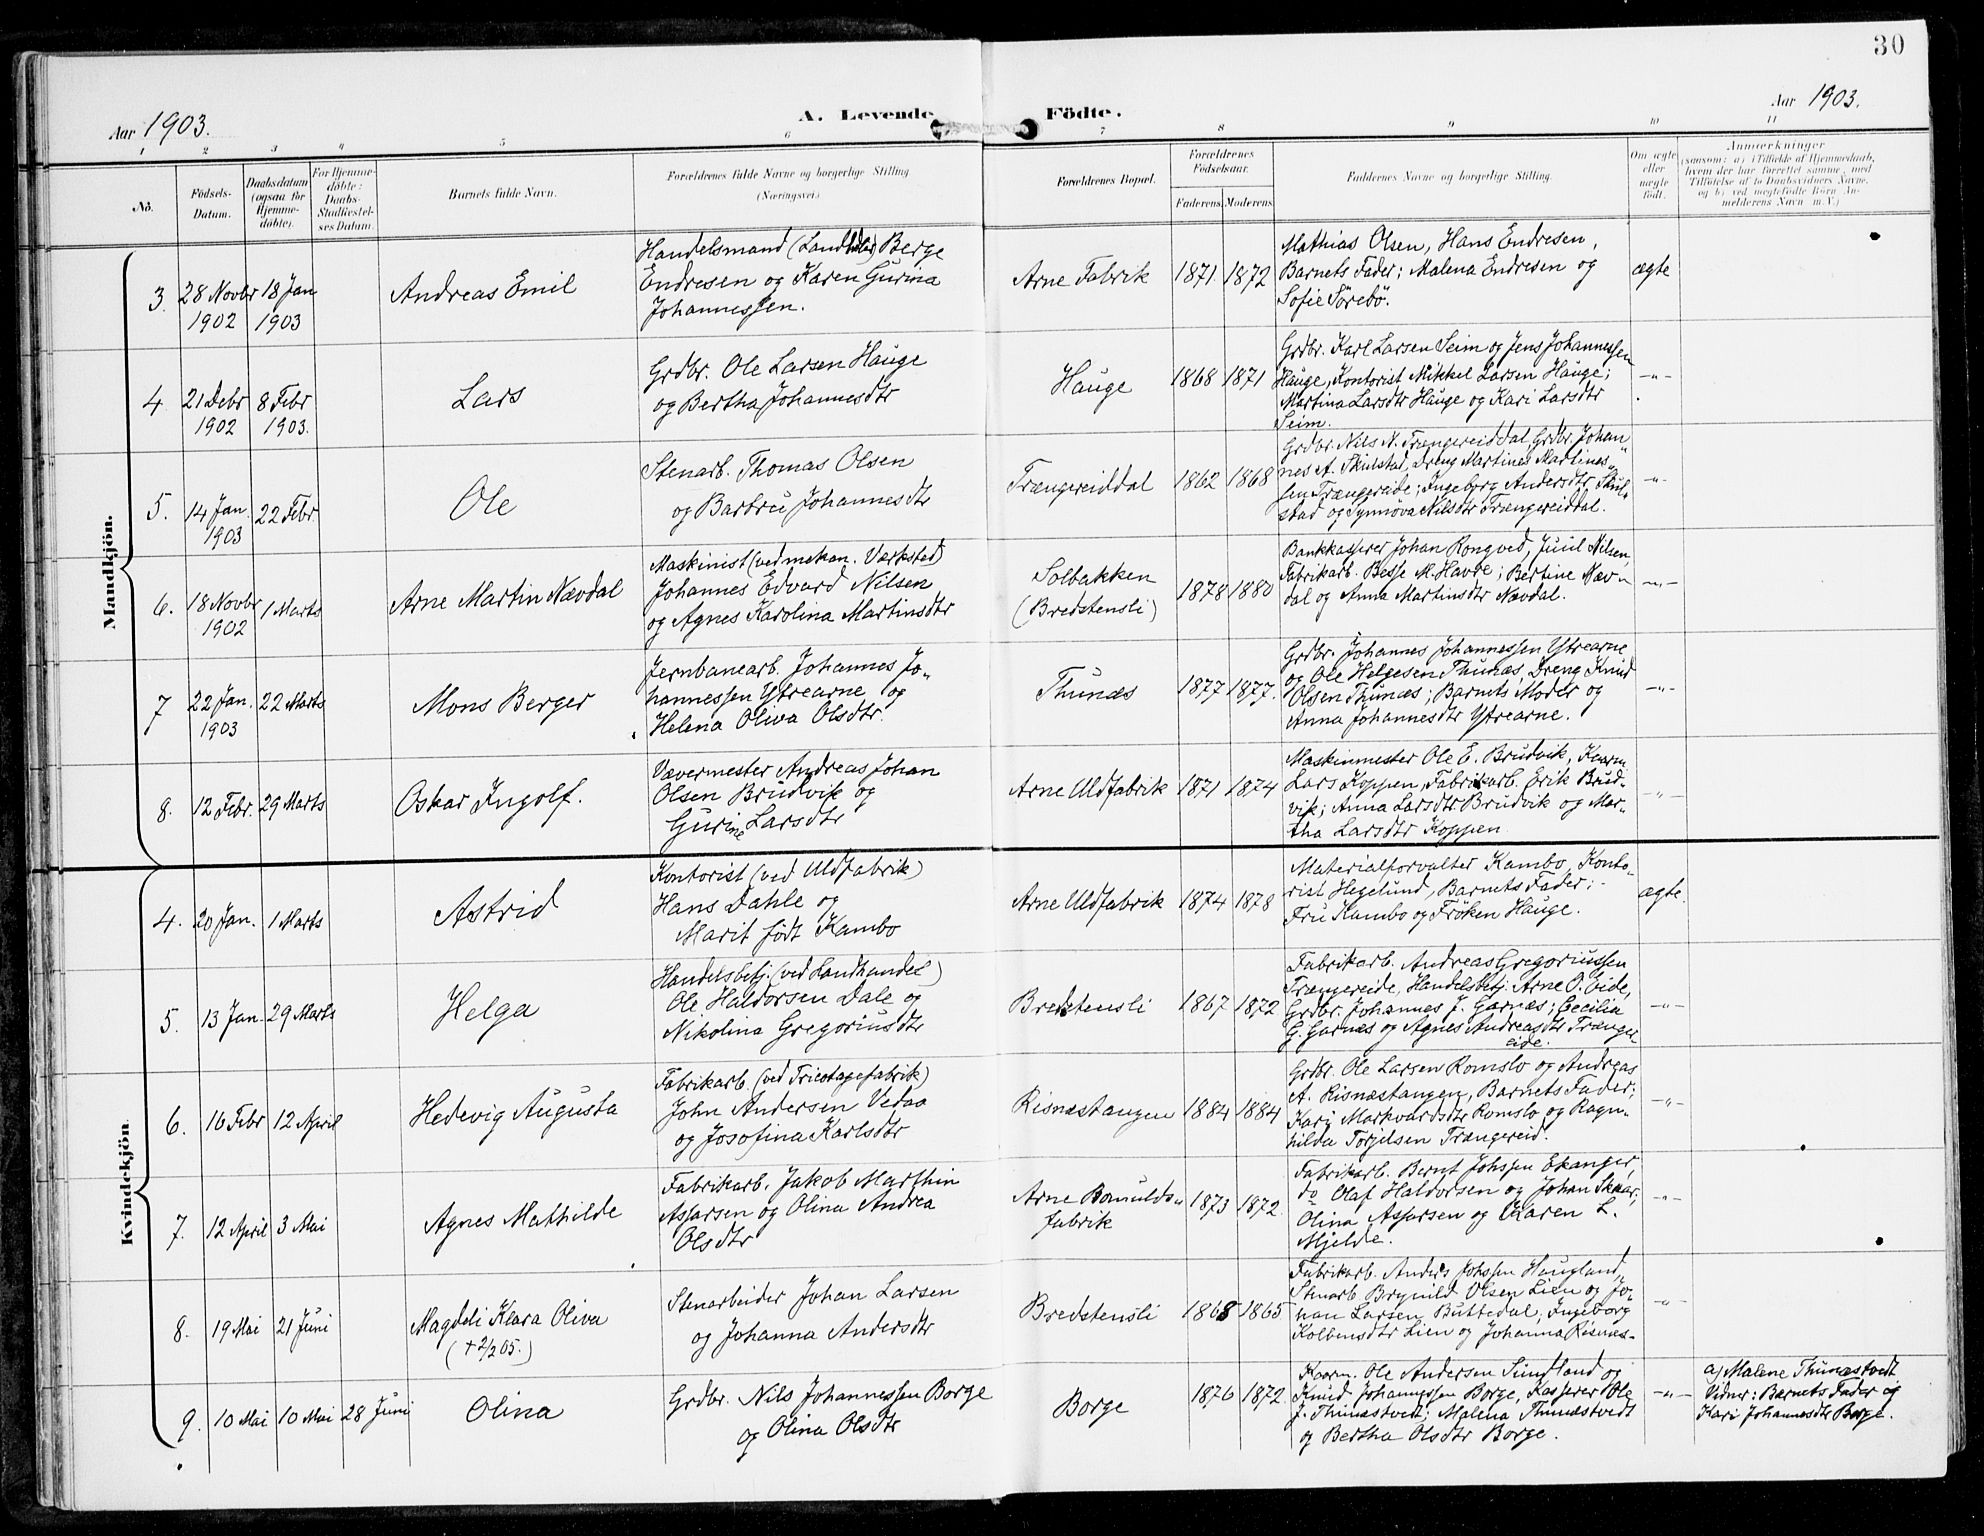 30
Aar 1903.
A. Levende Födte.
Aar 1903.
1 2 3 4 5 6 7 8 9 10 11
No.
Födsels-
Datum.
Daabsdatum
(ogsaa for
Hjemme-
döbte).
For Hjemme-
döbte:
Daabs-
Stadfæstel-
ses Datum.
Barnets fulde Navn.
Forældrenes fulde Navne og borgerlige Stilling
(Næringsvei)
Forældrenes Bopæl.
Forældrenes
Födselsaar.
Faderens. Moderens.
Faddernes Navne og borgerlige Stilling.
Om ægte
eller
uægte
födt.
Anmærkninger
(saasom: a) i Tilfælde af Hjemmedaab,
hvem der har forrettet samme, med
Tilföielse af to Daabsvidners Navne,
og b) ved uægtefödte Börn An-
melderens Navn m. V.)
Mandkjön.
3.
28 Novbr
1902
18 Jan
1903
Andreas Emil
Handelsmand (Landhdl) Berge
Endresen og Karen Gurina
Johannessen.
Arne Fabrik
1871. 1872
Mathias Olsen, Hans Endresen,
Barnets Fader; Malena Endresen og
Sofie Sörebö.
ægte
4
21 Debr
1902
8 Febr
1903.
Lars
Grdbr. Ole Larsen Hauge
og Bertha Johannesdtr
Hauge
1868 1871
Grdbr. Karl Larsen Seim og Jens Johannessen
Hauge, Kontorist Mikkel Larsen Hauge;
Martina Larsdtr Hauge og Kari Larsdtr
Seim.
-"-
5.
14 Jan.
1903
22 Febr.
Ole
Stenarb. Thomas Olsen
og Barbru Johannesdtr
Trængereiddal
1862 1868
Grdbr. Nils N. Trængereiddal, Grdbr. Johan"
nes A. Skulstad, Dreng Martines Martines"
sen Trængereide; Ingeborg Andersdtr. Skul-
stad og Synnöva Nilsdtr Trængereiddal.
-"-
6.
18 Novbr
1902
1 Marts
Arne Martin Nævdal
Maskinist (ved mekan. Værksted)
Johannes Edvard Nilsen
og Agnes Karolina Martinsdtr
Solbakken
(Bredstensli)
1878 1880
Bankkasserer Johan Rongved, Juul Nilsen,
Fabrikarb. Besse M. Havre; Bertine Næv"
dal og Anna Martinsdtr Nævdal.
-"-
7
22 Jan.
1903
22 Marts
Mons Berger
Jernbanearb. Johannes Jo-
hannessen Ytrearne og
Helena Oliva Olsdtr.
Thunæs
1877 1877.
Grdbr. Johannes Johannessen Ytrearne
og Ole Helgesen Thunæs, Dreng Knud
Olsen Thunæs; Barnets Moder og
Anna Johannesdtr Ytrearne.
-"-
8.
12 Febr.
29 Marts
Oskar Ingolf.
Vævermester Andreas Johan
Olsen Brudvik og
Gurine Larsdtr
Arne Uldfabrik
1871 1874
Maskinmester Ole E. Brudvik, Kaarm.
Lars Koppen, Fabrikarb. Erik Brud-
vik; Anna Larsdtr Brudvik og Mar-
tha Larsdtr Koppen.
-"-
Kvindekjön.
4.
20 Jan.
1 Marts
Astrid
Kontorist (ved Uldfabrik)
Hans Dahle og
Marit født Kambo
Arne Uldfabrik
1874 1878
Materialforvalter Kambo, Konto-
rist Hegelund, Barnets Fader;
Fru Kambo og Fröken Hauge.
ægte.
5.
13 Jan.
29 Marts
Helga
Handelsbetj. (ved Landhandel)
Ole Haldorsen Dale og
Nikolina Gregoriusdtr
Bredstensli
1867 1872
Fabrikarb. Andreas Gregoriussen
Trængereide, Handelsbetj. Arne O. Eide,
Grdbr. Johannes J. Garnæs; Cecilia
G. Garnæs og Agnes Andreasdtr Trænger-
eide.
-"-
6.
16 Febr
12 April
Hedevig Augusta
Fabrikarb. (ved Tricotagefabrik)
John Andersen Vedaa
og Josofina Karlsdtr
Risnæstangen
1884 1884
Grdbr. Ole Larsen Romslo og Andreas
A. Risnæstangen, Barnets Fader;
Kari Markvardsdtr Romslo og Ragn-
hilda Torjelsen Trængereid.
-"-
7.
12 April
3 Mai
Agnes Mathilde
Fabrikarb. Jakob Marthin
Assarsen og Olina Andrea
Olsdtr
Arne Bomulds"
fabrik
1873 1872.
Fabrikarb. Bernt Johssen Ekanger,
do Olaf Haldorsen og Johan Skaar;
Olina Assarsen og Karen L.
Mjelde.
-"-
8.
19 Mai
21 Juni
Magdeli Klara Oliva
(+ 2/2 05.)
Stenarbeider Johan Larsen
og Johanna Andersdtr
Bredstensli
1868 1865
Fabrikarb. Anders Johssen Haugland,
Stenarb Brynild Olsen Lien og Jo-
han Larsen Buttedal, Ingeborg
Kolbensdtr Lien og Johanna Risnæs-
-"-
9.
10 Mai
10 Mai
28 Juni
Olina
Grdbr. Nils Johannessen Borge
og Olina Olsdtr
Borge
1876 1872.
Kaarm. Ole Andersen Sundland og
Knud Johannessen Borge, Kasserer Ole
J. Thunæstvedt; Malena Thunæstvedt
og Bertha Olsdtr Borge.
-"-
a) Malene Thunæstvedt.
Vidner: Barnets Fader og
Kari Johannesdtr Borge.